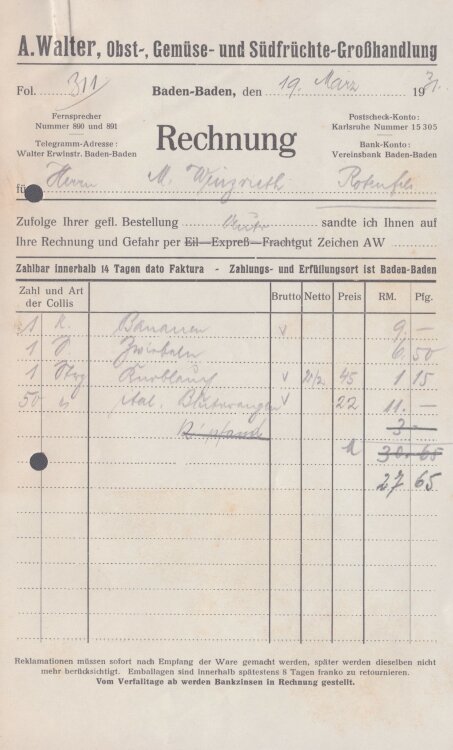 A. Walter, Obst-, Gemüse- und Südfrüchte-Großhandlung
Fol. 311 Baden-Baden, den 19. März 1931.
Fernsprecher
Nummer 890 und 891
Telegramm-Adresse:
Walter Erwinstr. Baden-Baden
Rechnung
Postscheck-Konto:
Karlsruhe Nummer 15305
Bank-Konto:
Vereinsbank Baden-Baden
für Herrn M. Rotenfels
Zufolge Ihrer gefl. Bestellung sandte ich Ihnen auf
Ihre Rechnung und Gefahr per Eil-Expreß-Frachtgut Zeichen AW
Zahlbar innerhalb 14 Tagen dato Faktura - Zahlungs- und Erfüllungsort ist Baden-Baden
Zahl und Art der Collis Brutto Netto Preis RM. Pfg.
1 K. Bananen v 9.—
1 S. Zwiebeln 6.50
1 Knoblauch v 2 1/2 45 1 15
50 Blutorangen v 22 11.—
3.—
30.65
27 65
Reklamationen müssen sofort nach Empfang der Ware gemacht werden, später werden dieselben nicht
mehr berücksichtigt. Emballagen sind innerhalb spätestens 8 Tagen franko zu retournieren.
Vom Verfalltage ab werden Bankzinsen in Rechnung gestellt.